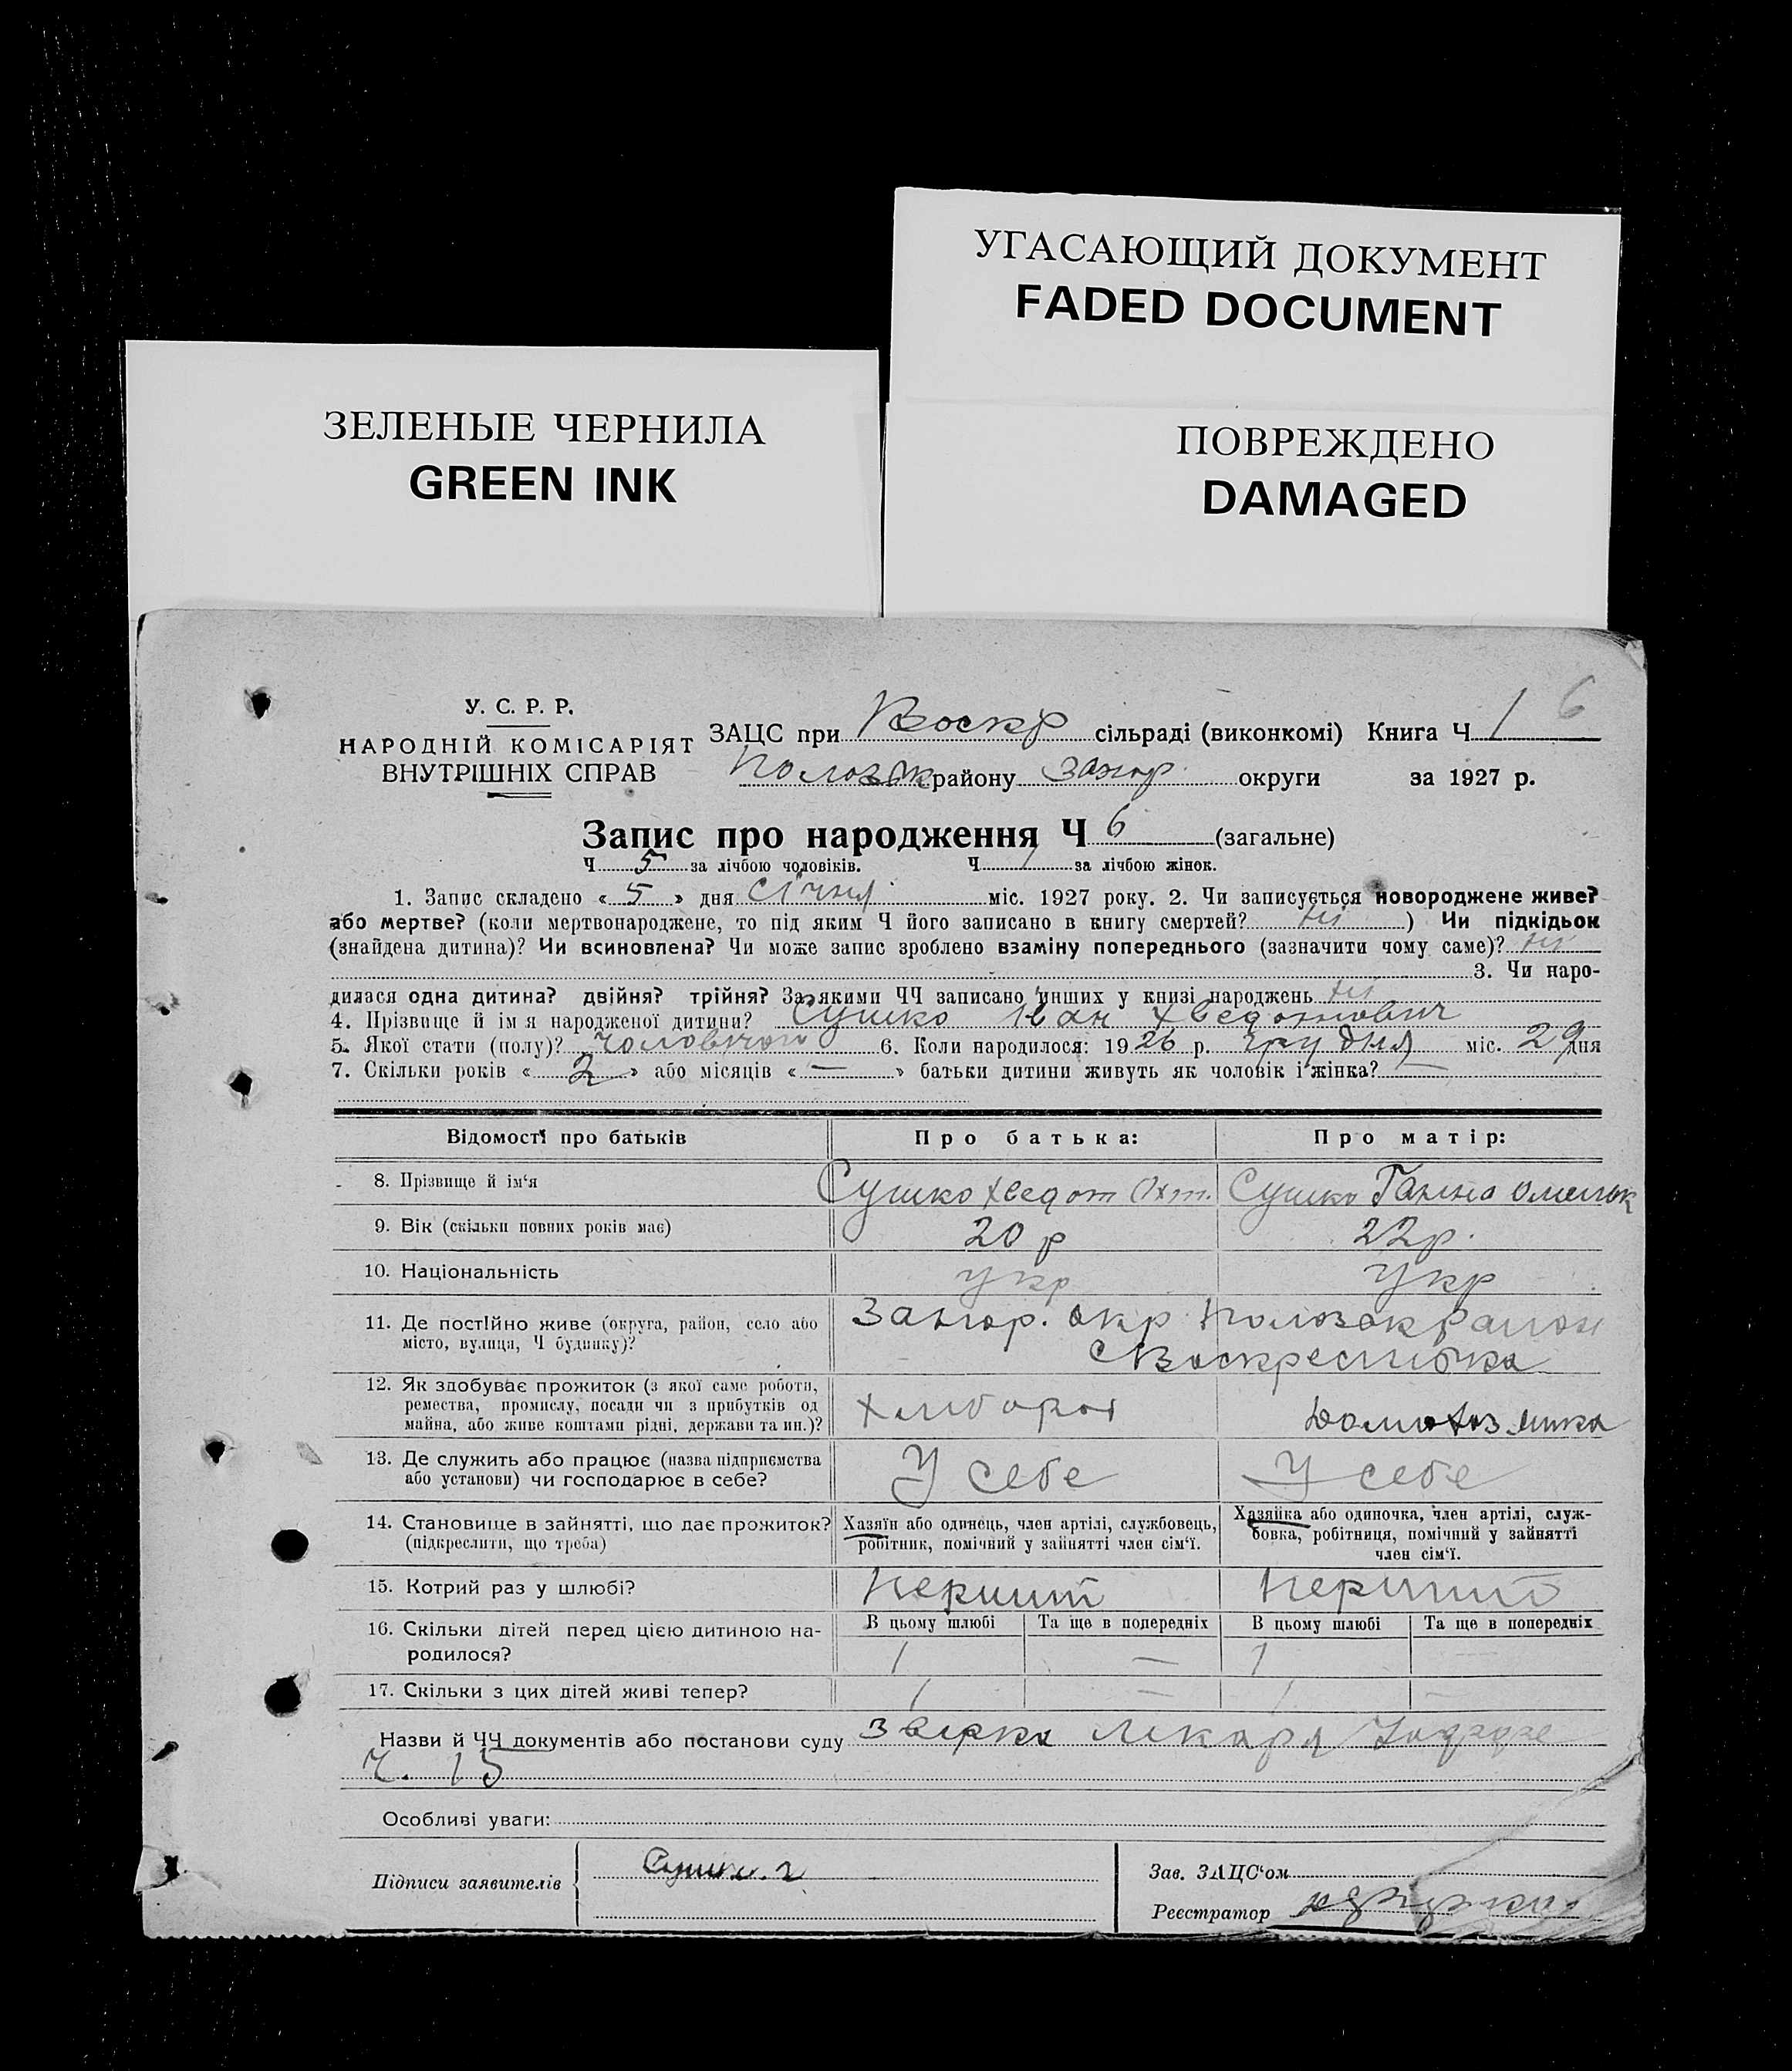 УГАСАЮЩИЙ ДОКУМЕНТ
FADED DOCUMENT
ЗЕЛЕНЫЕ ЧЕРНИЛА
GREEN INK
ПОВРЕЖДЕНО
DAMAGED
У. С. Р. Р.
НАРОДНІЙ КОМІСАРІЯТ
ВНУТРІШНІХ СПРАВ
ЗАЦС при Воскр сільраді (виконкомі) Книга Ч 1 6
району Запор. округи за 1927 р.
Запис про народження Ч 6 (загальне)
Ч 5 за лічбою чоловіків. Ч 1 за лічбою жінок.
1. Запис складено « 5 » дня січня міс. 1927 року. 2. Чи записується новороджене живе?
або мертве? (коли мертвонароджене, то під яким Ч його записано в книгу смертей? ні ) Чи підкідьок
(знайдена дитина)? Чи всиновлена? Чи може запис зроблено взаміну попереднього (зазначити чому саме)? ні
3. Чи наро-
дилася одна дитина? двійня? трійня? За якими ЧЧ записано инших у книзі народжень ні
4. Прізвище й імя народженої дитини? Сушко Іван Хведотович
5. Якої стати (полу)? 6. Коли народилося: 1926 р. грудня міс. 29 дня
7. Скільки років « 2 » або місяців « — » батьки дитини живуть як чоловік і жінка? —
Відомості про батьків Про батька: Про матір:
8. Прізвище й ім'я Сушко Хведот Сушко Ганна
9. Вік (скільки повних років має) 20 р 22 р.
10. Національність укр укр
11. Де постійно живе (округа, район, село або Запор. окр район
місто, вулиця, Ч будинку)?
12. Як здобуває прожиток (з якої саме роботи,
ремества, промислу, посади чи з прибутків од
майна, або живе коштами рідні, держави та ин.)?
13. Де служить або працює (назва підприємства У себе У себе
або установи) чи господарює в себе?
14. Становище в зайнятті, що дає прожиток? Хазяїн або одинець, член артілі, службовець, Хазяйка або одиночка, член артілі, служ-
(підкреслити, що треба) робітник, помічний у зайнятті член сім'ї. бовка, робітниця, помічний у зайнятті
член сім'ї.
15. Котрий раз у шлюбі? перший перший
16. Скільки дітей перед цією дитиною на- В цьому шлюбі Та ще в попередніх В цьому шлюбі Та ще в попередніх
родилося? 1 — 1 —
17. Скільки з цих дітей живі тепер? 1 — 1 —
Назви й ЧЧ документів або постанови суду лікаря
Ч. 15
Особливі уваги:
Підписи заявителів
Зав. ЗАЦС'ом
Реєстратор